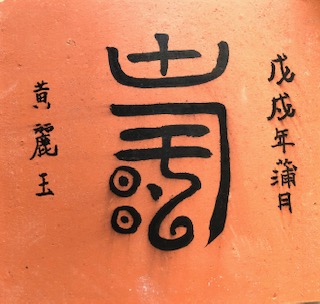 戊戌年蒲月
壽
黃麗玉